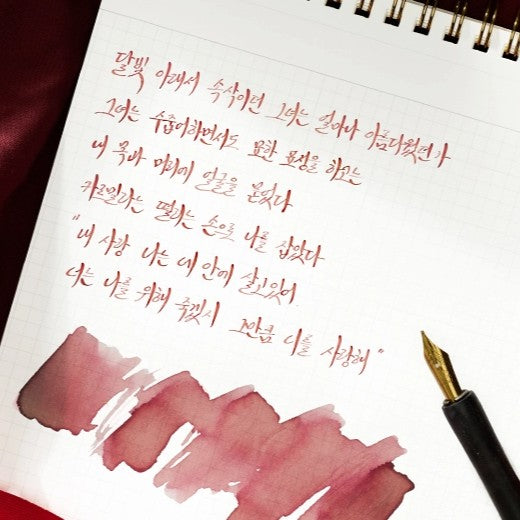 달빛 아래서 속삭이던 그녀는 얼마나 아름다웠던가
그녀는 수줍어하면서도 묘한 표정을 하고는
내 목과 머리에 얼굴을 묻었다
카르밀라는 떨리는 손으로 나를 잡았다
"내 사랑 나는 네 안에 살고있어.
너는 나를 위해 죽겠지 그만큼 너를 사랑해"